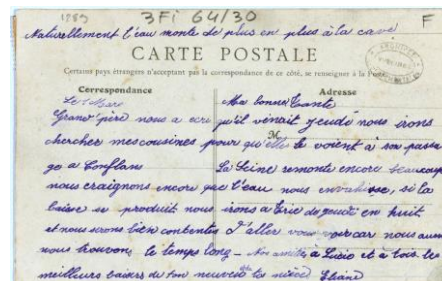 1789
3Fi 64/30
F
Naturellement l'eau monte de plus en plus à la cave
CARTE POSTALE
Certains pays étrangers n'acceptant pas la correspondance de ce côté, se renseigner à la Poste
Correspondance
Adresse
Le 1 Mars
Ma bonne Tante
Grand'père nous a écrit qu'il venait jeudi nous irons
M
chercher mes cousines pour qu'elle le voient à son passa
ge a Conflans
La Seine remonte encore beaucoup
nous craignons encore que l'eau nous envahisse, si la
baisse se produit nous irons a de jeudi en huit
et nous serons bien contentes d'aller vous voir car nous aussi
nous trouvons le temps long – Nos amitiés à et à tous les
meilleurs baisers de ton neveu ta nièce